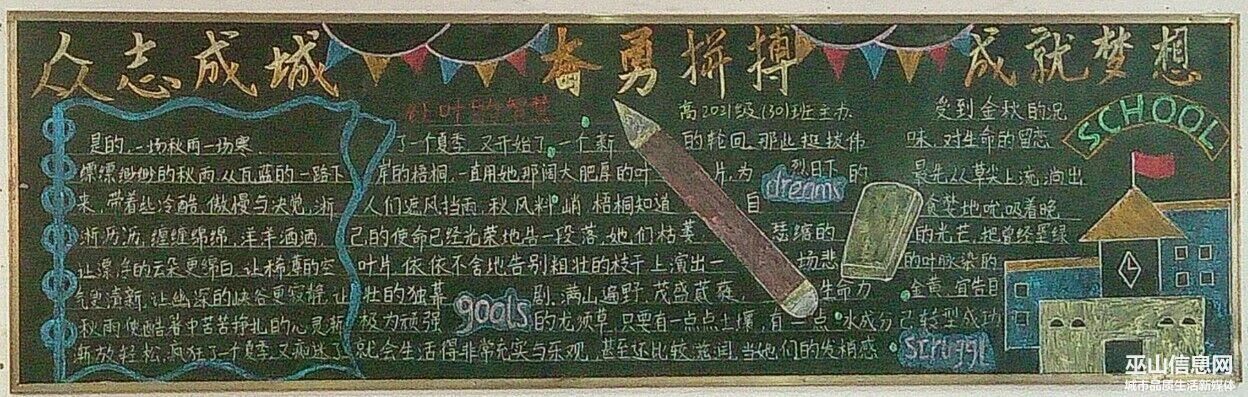 众志成城 奋勇拼搏 成就梦想
秋叶的智慧
高2021级(30)班主办
是的,一场秋雨一场寒
缥缥缈缈的秋雨,从瓦蓝的一路下
来,带着些冷酷、傲慢与决觉,淅
淅沥沥,缠缠绵绵,洋洋洒洒
让漂浮的云朵更绵白,让稀薄的空
气更清新,让幽深的峡谷更寂静,让
秋雨使酷暑中苦苦挣扎的心灵渐
渐放轻松,疯狂了一个夏季,又痴迷了
了一个夏季,又开始了一个新的轮回,那些挺拔伟
岸的梧桐,一直用她那阔大肥厚的叶片,为烈日下的
人们遮风挡雨,秋风料峭 梧桐知道自
己的使命已经光荣地告一段落,她们枯萎瑟缩的
叶片,依依不舍地告别粗壮的枝干上演出一场悲
壮的独幕剧,满山遍野,茂盛葳蕤,生命力
极为顽强的龙须草,只要有一点点土壤,有一点水成分
就会生活得非常充实与乐观,甚至还比较滋润,当他们的发梢感
受到金秋的况
味,对生命的留恋
最先从草尖上流淌出
贪婪地吮吸着晚
的光芒,把曾经墨绿
的叶脉染的
金黄,宣告自
己转型成功
dreams
goals
struggl
SCHOOL
巫山信息网
城市品质生活新媒体